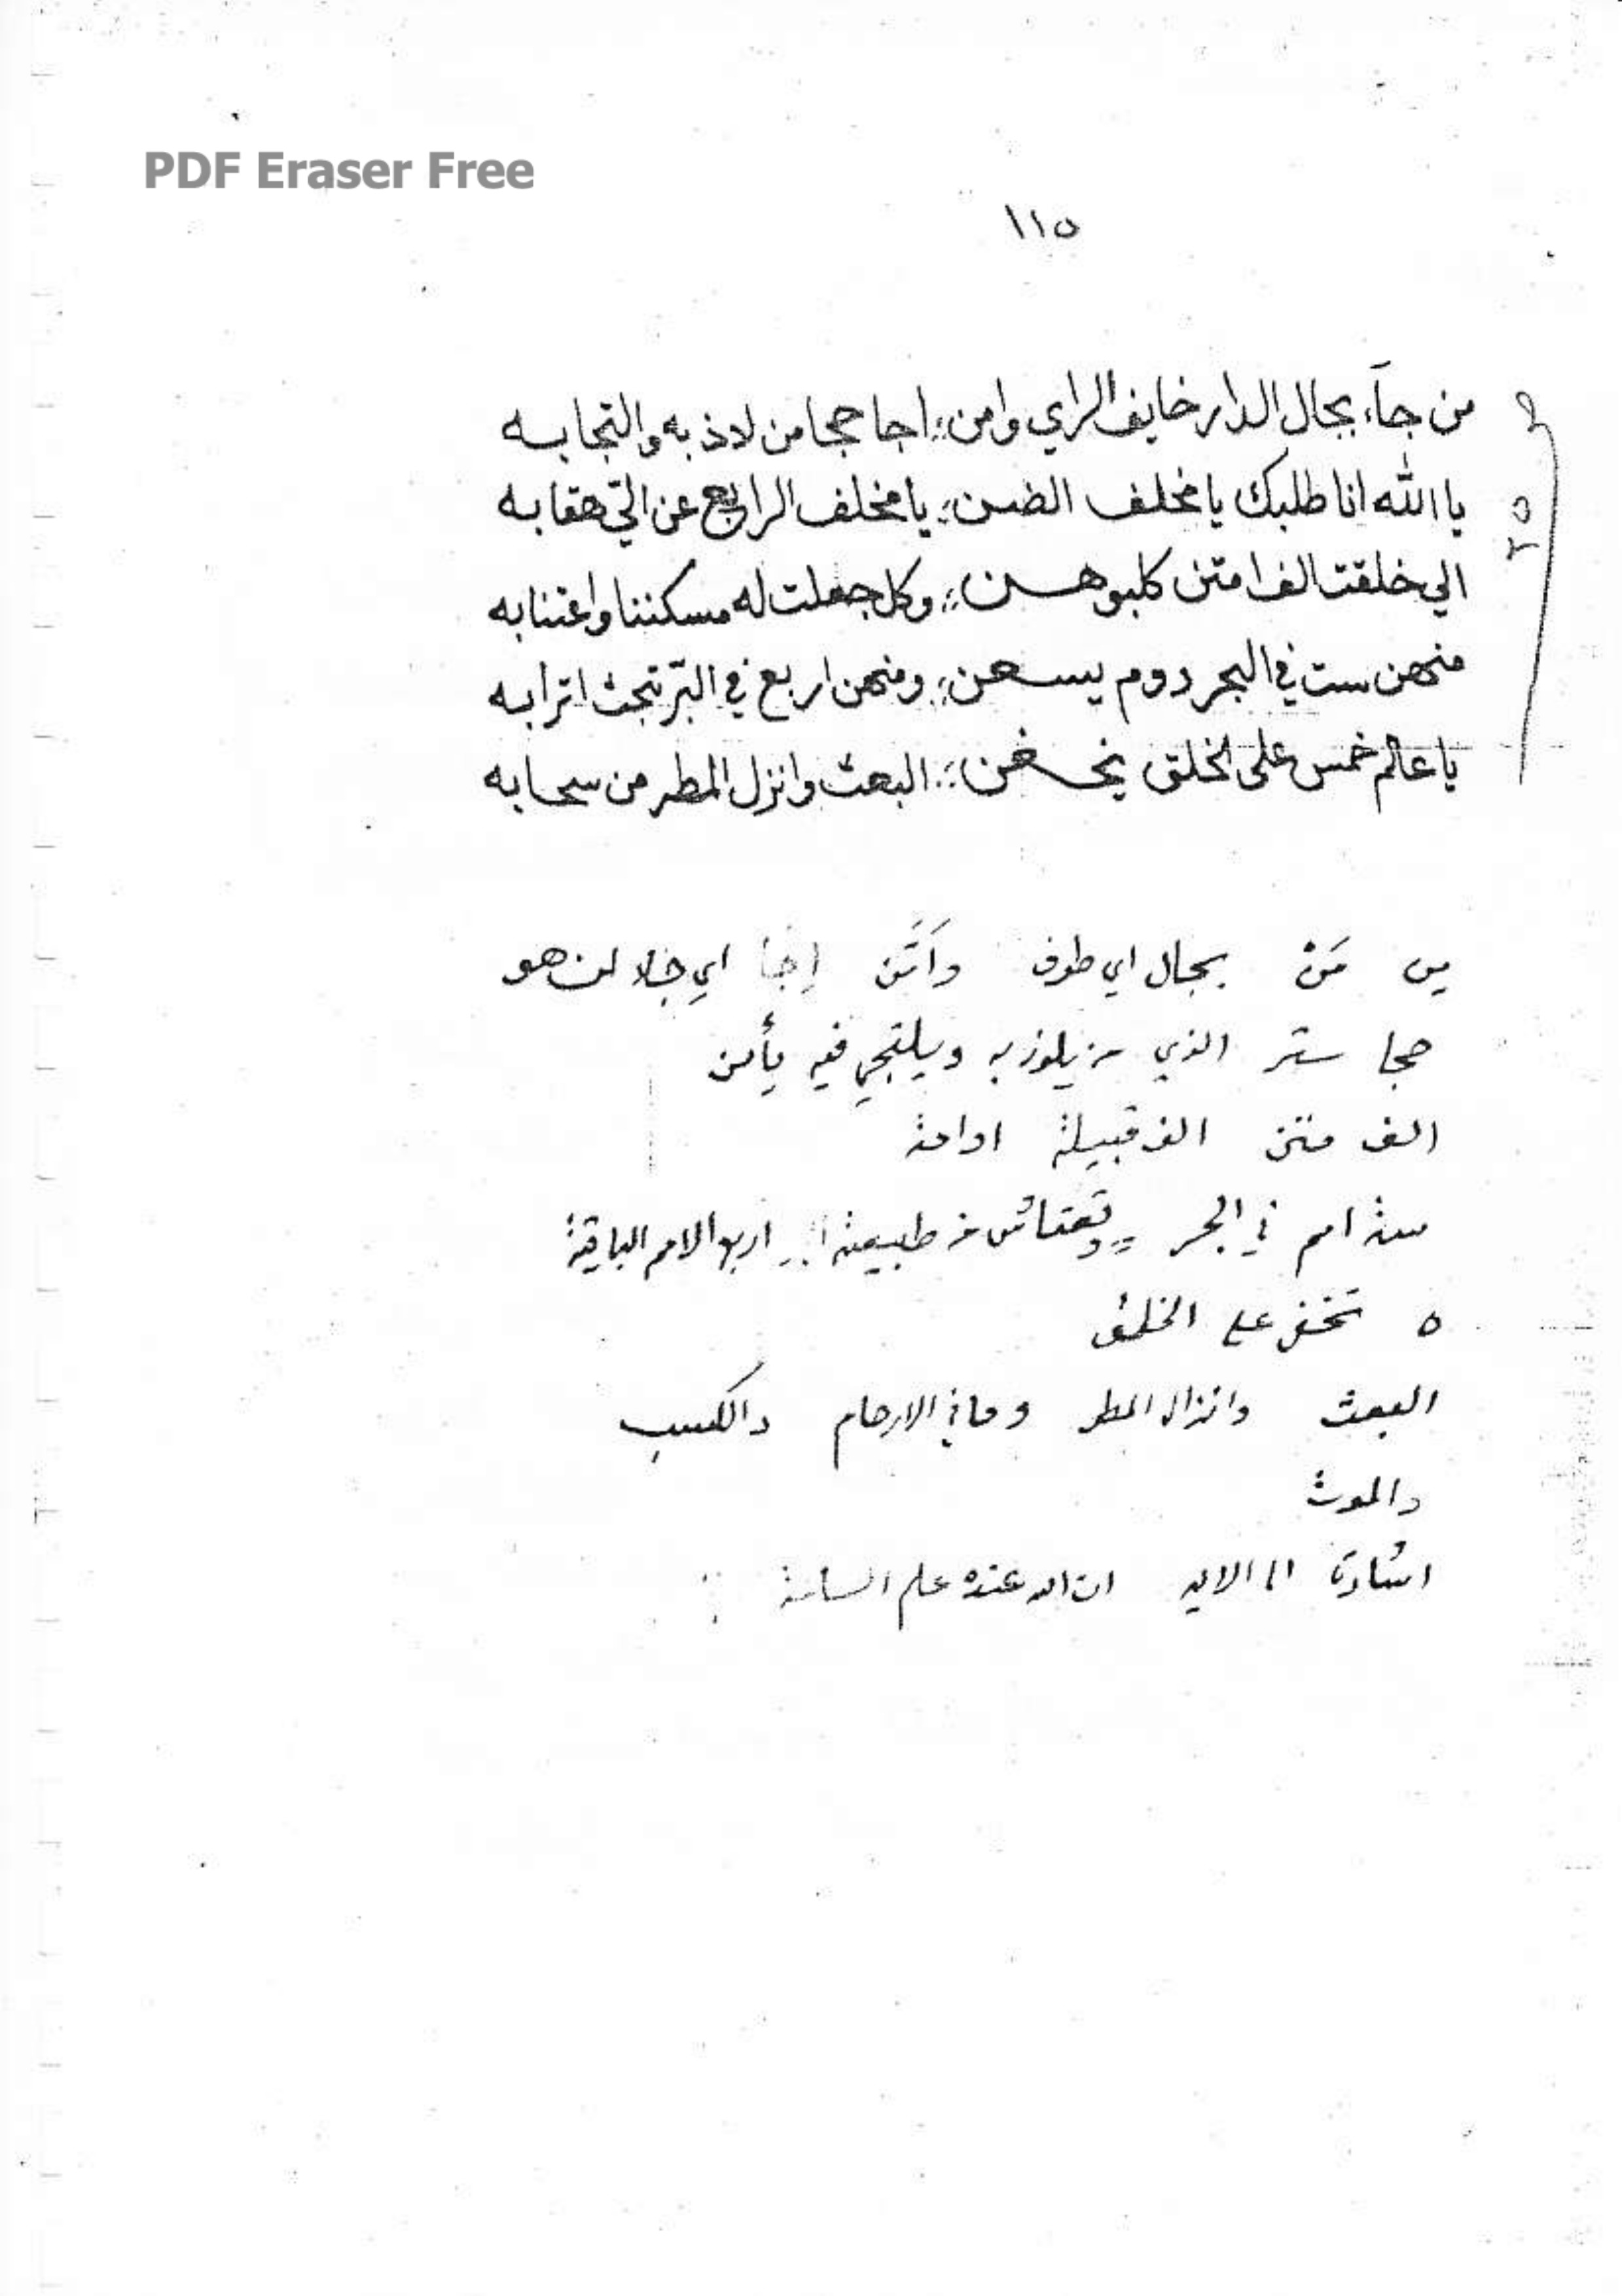 PDF Eraser Free
١١٥
من جآء بجال الدار خايف الراي وامن :: اجا حجا من لاذ به والتجا به
يا الله انا طلبك يا مخلف الضن :: يا مخلف الرابع عن التي هقا به
الي خلقت الف امتن كلبوهن :: وكل جعلت له مسكننا واعتنا به
منهن ست في البحر دوم يسعن :: ومنهن اربع في البر تبحث اترابه
يا عالم خمس على الخلق يخفن :: البعث وانزل المطر من سحابه
٢٥
من بجال اي طوف اجا اي جلا لمن هو
حجا ستر الذي من يلوذ به ويلتجي فيه يأمن
الف متن الف قبيلة او امة
ستة امم في البحر وتعتاش من طبيعة اربع الامم الباقية
٥ تخفى على الخلق
البعث وانزال المطر وما في الارحام والكسب
والموت
اشارة الى الايه ان الله عنده علم الساعة